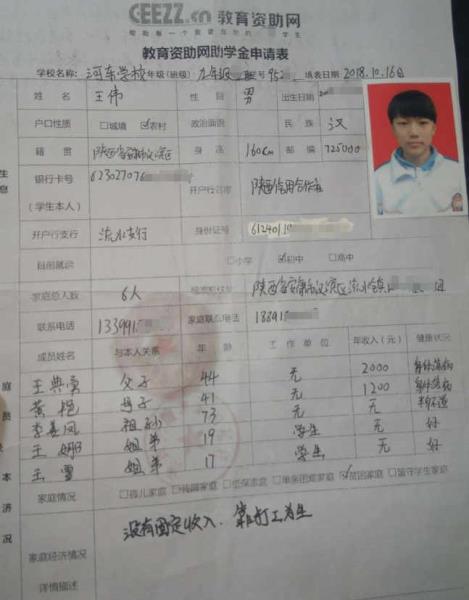 CEEZZ.cn 教育资助网
教育资助网助学金申请表
学校名称: 河东学校 年级(班级) 九年级 号 952 填表日期 2018.10.16日
姓名 王伟 性别 男 出生日期 20
户口性质 □城镇 ☑农村 政治面貌 民族 汉
籍贯 陕西省安康市汉滨区 身高 160cm 邮编 725000
银行卡号 623027076
(学生本人) 开户行名称 陕西信用合作社
开户行支行 流水支行 身份证号 6124011
目前就读 □小学 ☑初中 □高中
家庭总人数 6人 陕西省安康市汉滨区流水镇
联系电话 133991 家庭联系电话 18891
成员姓名 与本人关系 年龄 工作单位 年收入(元) 健康状况
王典勇 父子 44 无 2000
黄艳 母子 41 无 1200
李善凤 祖孙 73 无 无
王娜 姐弟 19 学生 无 好
王雪 姐弟 17 学生 无 好
家庭情况 □孤儿家庭 □残困家庭 □低保家庭 □单亲困难家庭 ☑贫困家庭 □留守学生家庭
没有固定收入、靠打工为生
家庭经济情况
详情描述